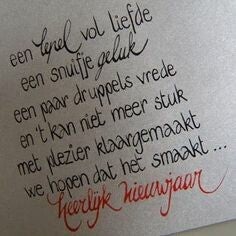 een lepel vol liefde
een snuifje geluk
een paar druppels vrede
en 't kan niet meer stuk
met plezier klaargemaakt
we hopen dat het smaakt ...
heerlijk nieuwjaar